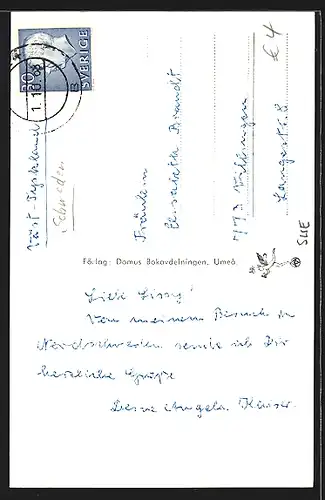 Liebe Sissy!
Von meinem Besuch in
Nordschweden sende ich Dir
herzliche Grüße
Deine Angela Kaiser.
Förlag: Domus Bokavdelningen, Umeå.
Fräulein
Elisabeth Brandt
773 Villingen
Langestr. 8
Väst-Tyskland
Schweden
SVERIGE
30
1.10.68
€ 4
SWE